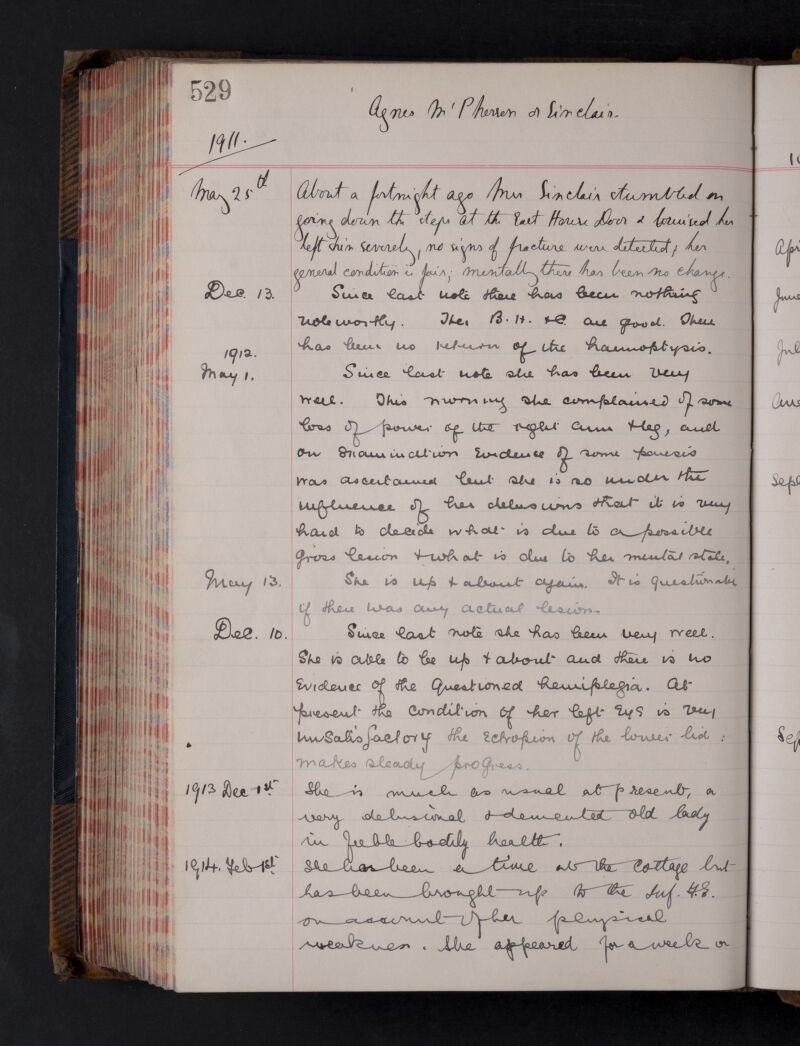 529
Agnes McPherson or Sinclair.
1911.
May 25th About a fortnight ago Mrs Sinclair stumbled on
going down the steps at the East House Door & bruised her
left shin severely, no signs of fracture were detected; her
general condition is fair; mentally there has been no change.
Dec. 13. Since last note there has been nothing
noteworthy. The B. H. &c are good. There
has been no return of the haemoptysis.
1912.
May 1. Since last note she has been very
well. This morning she complained of some
loss of power of the right arm & leg, and
on examination evidence of some paresis
was ascertained but she is so under the
influence of her delusions that it is very
hard to decide what is due to a possible
gross lesion & what is due to her mental state.
May 13. She is up & about again. It is questionable
if there was any actual lesion.
Dec. 10. Since last note she has been very well.
She is able to be up & about and there is no
evidence of the questioned hemiplegia. At
present the condition of her left eye is very
unsatisfactory the ectropion of the lower lid
makes steady progress.
1913 Dec 1st She is much as usual at present, a
very delusional & demented old lady
in feeble bodily health.
1914. Feb 1st She has been a time at the Cottage but
has been brought up to the Inf. H.E.
on account of her physical
weakness. She appeared for a week or
Apr
June
Jul
Sept
Sep